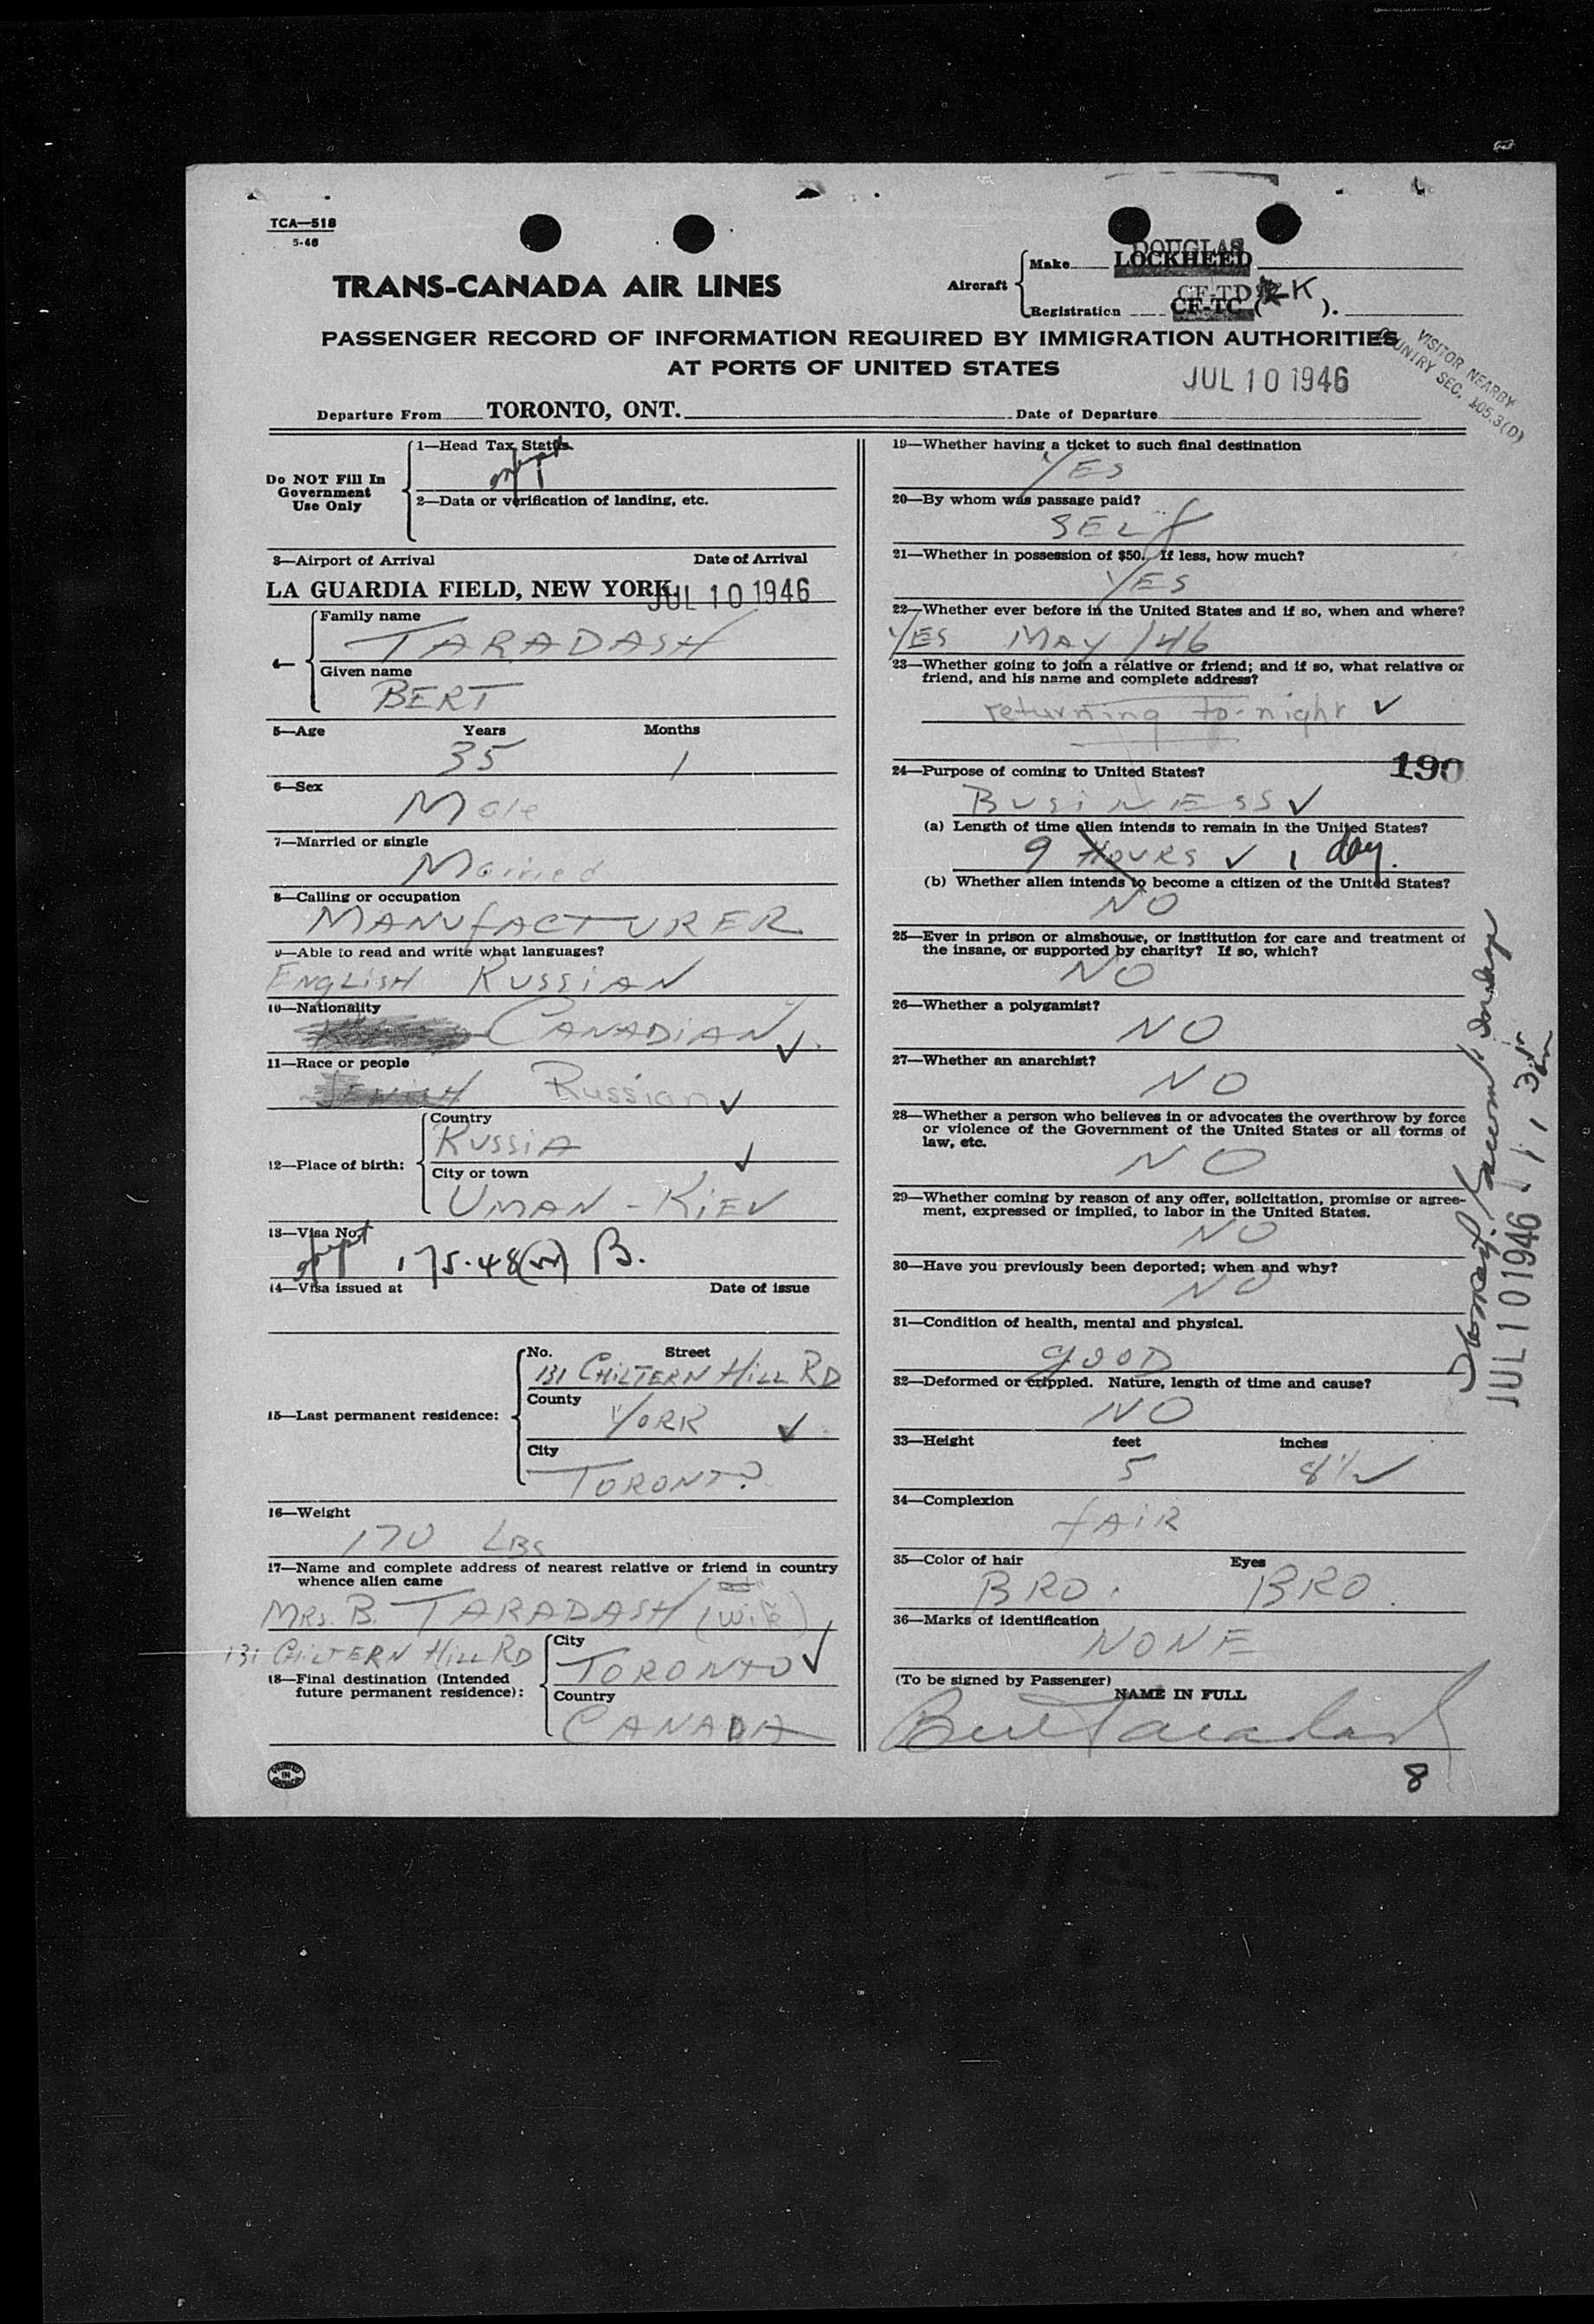 TCA—518
5-46
TRANS-CANADA AIR LINES
Aircraft
Make DOUGLAS
LOCKHEED
Registration CF-TD K
CF-TC ( ).
PASSENGER RECORD OF INFORMATION REQUIRED BY IMMIGRATION AUTHORITIES
AT PORTS OF UNITED STATES
VISITOR NEARBY
COUNTRY SEC. 105.3(D)
JUL 10 1946
Departure From TORONTO, ONT.
Date of Departure
Do NOT Fill In
Government
Use Only
1—Head Tax Status
2—Data or verification of landing, etc.
3—Airport of Arrival Date of Arrival
LA GUARDIA FIELD, NEW YORK. JUL 10 1946
4—
Family name
TARADASH
Given name
BERT
5—Age Years Months
35 1
6—Sex
Male
7—Married or single
Married
8—Calling or occupation
MANUFACTURER
9—Able to read and write what languages?
ENGLISH RUSSIAN
10—Nationality
CANADIAN
11—Race or people
JEWISH Russian
12—Place of birth:
Country
RUSSIA
City or town
UMAN - KIEV
13—Visa No.
175.48 B.
14—Visa issued at Date of issue
15—Last permanent residence:
No. Street
131 CHILTERN HILL RD
County
YORK
City
TORONTO
16—Weight
170 LBS
17—Name and complete address of nearest relative or friend in country
whence alien came
MRS. B. TARADASH (wife)
131 CHILTERN HILL RD
18—Final destination (Intended
future permanent residence):
City
TORONTO
Country
CANADA
PRINTED
IN
CANADA
19—Whether having a ticket to such final destination
YES
20—By whom was passage paid?
SELF
21—Whether in possession of $50. If less, how much?
YES
22—Whether ever before in the United States and if so, when and where?
YES MAY /46
23—Whether going to join a relative or friend; and if so, what relative or
friend, and his name and complete address?
returning to-night
190
24—Purpose of coming to United States?
BUSINESS
(a) Length of time alien intends to remain in the United States?
9 HOURS 1 day.
(b) Whether alien intends to become a citizen of the United States?
NO
25—Ever in prison or almshouse, or institution for care and treatment of
the insane, or supported by charity? If so, which?
NO
26—Whether a polygamist?
NO
27—Whether an anarchist?
NO
28—Whether a person who believes in or advocates the overthrow by force
or violence of the Government of the United States or all forms of
law, etc.
NO
29—Whether coming by reason of any offer, solicitation, promise or agree-
ment, expressed or implied, to labor in the United States.
NO
30—Have you previously been deported; when and why?
NO
31—Condition of health, mental and physical.
GOOD
32—Deformed or crippled. Nature, length of time and cause?
NO
33—Height feet inches
5 8½
34—Complexion
FAIR
35—Color of hair Eyes
BRO. BRO.
36—Marks of identification
NONE
(To be signed by Passenger)
NAME IN FULL
Bert Taradash
8
JUL 10 1946